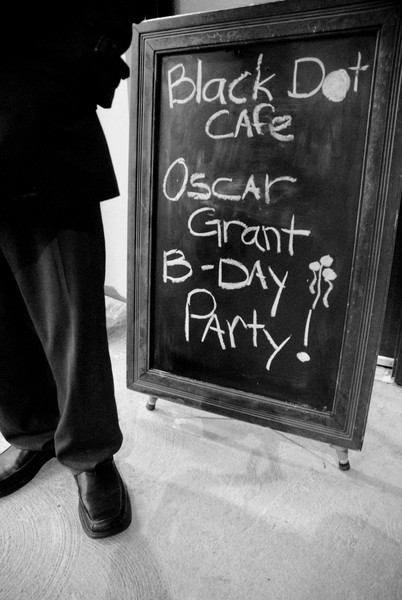 Black Dot
CAfe
Oscar
Grant
B-DAY
PArty!